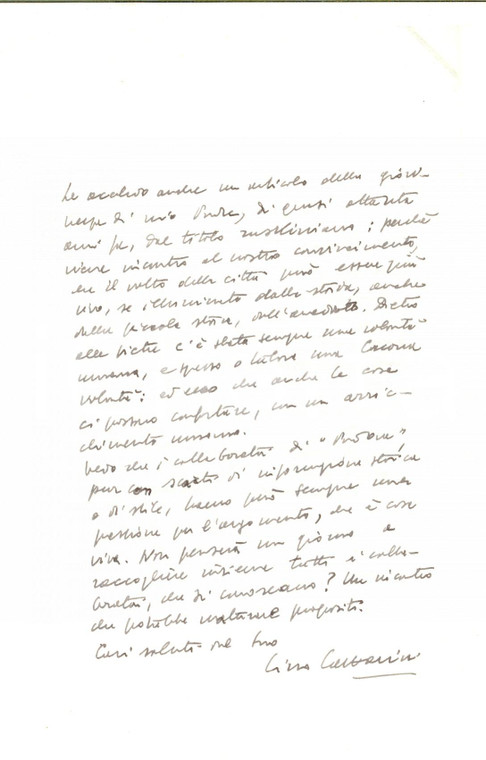 Le accludo anche un articolo della giovi-
nezza di mio Padre, di quasi ottanta
anni fa, dal titolo ruskiniano; perché
viene incontro al nostro convincimento,
che il volto della città può essere più
vivo, se illuminato dalla storia, anche
dalla piccola storia, dall'aneddoto. Dietro
alle pietre c'è stata sempre una volontà
umana, e spesso o talora una
volontà: ed ecco che anche le cose
ci possono confortare, con un arric-
chimento umano.
Vedo che i collaboratori di "Padova",
pur con scarto di informazione storica
o di stile, hanno però sempre una
passione per l'argomento, che è cosa
viva. Non penserà un giorno a
raccogliere insieme tutti i colla-
boratori, che si conoscano? Un incontro
che potrebbe maturare propositi.
Cari saluti dal Suo